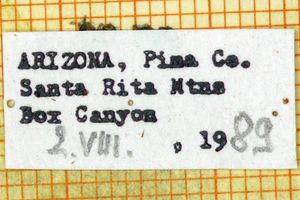 ARIZONA, Pima Co.
Santa Rita Mtns
Box Canyon
2.VIII. , 1989